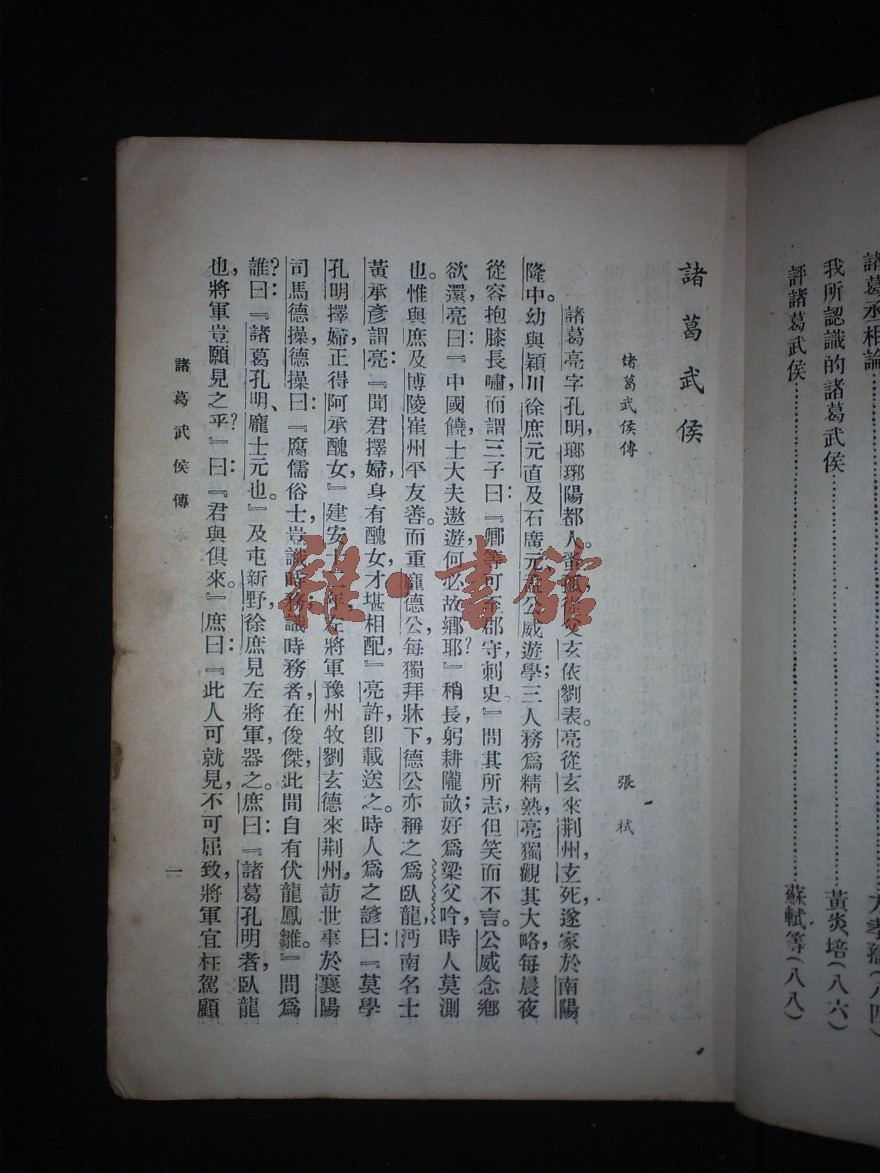 諸葛丞相論
我所認識的諸葛武侯……黃炎培(八六)
評諸葛武侯……蘇軾等(八八)
諸葛武侯
諸葛武侯傳 張栻
諸葛亮字孔明,瑯琊陽都人。蚤孤,從父玄依劉表。亮從玄來荆州,玄死,遂家於南陽
隆中。幼與潁川徐庶元直及石廣元、孟公威遊學;三人務爲精熟,亮獨觀其大略,每晨夜
從容抱膝長嘯,而謂三子曰:『卿等可至郡守刺史。』問其所志,但笑而不言。公威念鄉
欲還,亮曰:『中國饒士大夫,遨遊何必故鄉耶?』稍長,躬耕隴畝;好爲梁父吟,時人莫測
也。惟與庶及博陵崔州平友善。而重龐德公,每獨拜牀下,德公亦稱之爲臥龍,沔南名士
黃承彥謂亮:『聞君擇婦,身有醜女,才堪相配。』亮許,卽載送之。時人爲之諺曰:『莫學
孔明擇婦,正得阿承醜女。』建安十二年,左將軍豫州牧劉玄德來荆州,訪世事於襄陽
司馬德操,德操曰:『腐儒俗士,豈識時務;識時務者,在俊傑,此間自有伏龍鳳雛。』問爲
誰?曰:『諸葛孔明、龐士元也。』及屯新野,徐庶見左將軍器之。庶曰:『諸葛孔明者,臥龍
也,將軍豈願見之乎?』曰:『君與俱來。』庶曰:『此人可就見,不可屈致,將軍宜枉駕顧
諸葛武侯傳
一
雜·書館